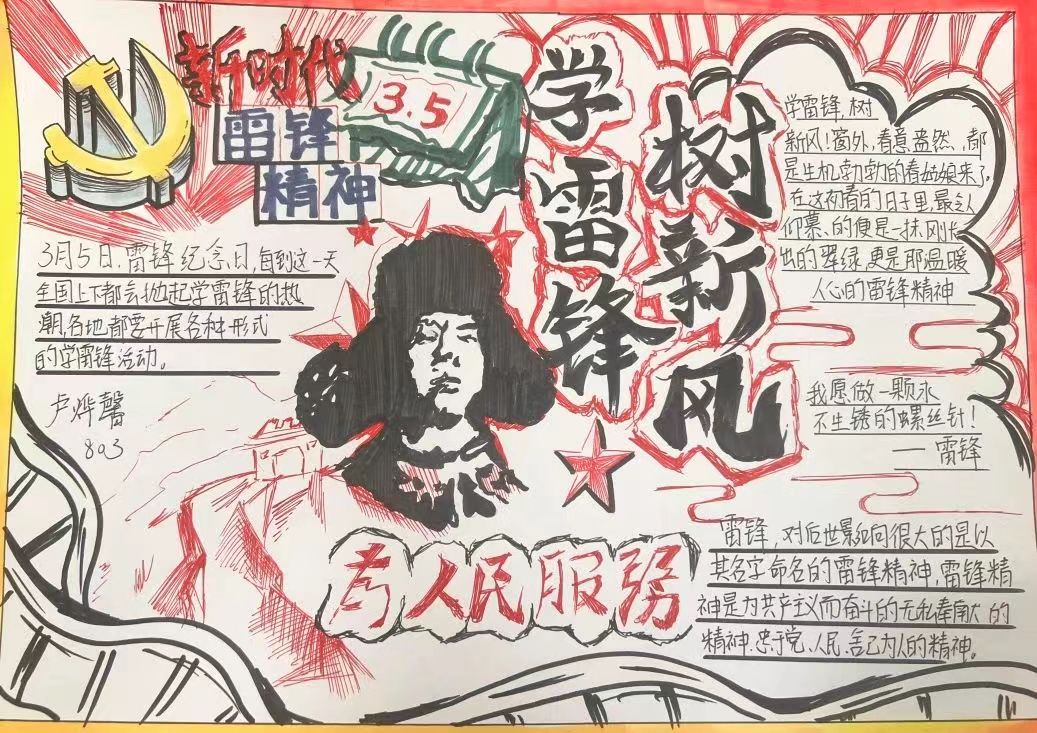 新时代
雷锋
精神
3.5
学雷锋
树新风
3月5日,雷锋纪念日,每到这一天
全国上下都会掀起学雷锋的热
潮,各地都要开展各种形式
的学雷锋活动。
卢烨馨
803
学雷锋,树
新风!窗外,春意盎然,都
是生机勃勃的春姑娘来了。
在这初春的日子里,最令人
仰慕、的便是一抹刚长
出的翠绿,更是那温暖
人心的雷锋精神
我愿做一颗永
不生锈的螺丝钉!
——雷锋
为人民服务
雷锋,对后世影响很大的是以
其名字命名的雷锋精神,雷锋精
神是为共产主义而奋斗的无私奉献的
精神.忠于党、人民,舍己为人的精神。